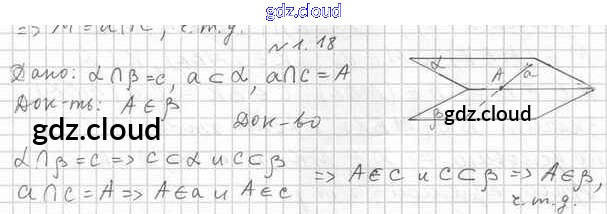 gdz.cloud
=> M = a∩c, ч.т.д.
№1.18
Дано: α∩β=c, a⊂α, a∩c=A
Док-ть: A∈β
gdz.cloud
Док-во
gdz.cloud
α∩β=c => c⊂α и c⊂β
a∩c=A => A∈a и A∈c
=> A∈c и c⊂β => A∈β,
ч.т.д.
α
A
a
β
gdz.cloud